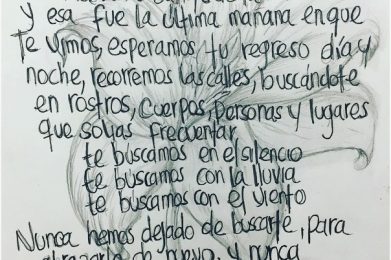 y esa fue la última mañana en que
te vimos, esperamos tu regreso día y
noche, recorremos las calles, buscándote
en rostros, cuerpos, personas y lugares
que solías frecuentar,
te buscamos en el silencio
te buscamos con la lluvia
te buscamos con el viento
Nunca hemos dejado de buscarte, para
de nuevo, y nunca